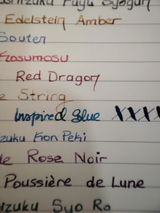 Fuyu Syogun
Edelstein Amber
Souten
Kosumosu
Red Dragon
String
Inspired Blue XXXX
zuku Kon Peki
Rose Noir
Poussière de Lune
Syo Ro